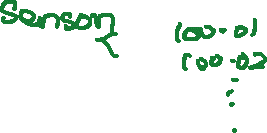 sensor { 100.01
100.02
⋮